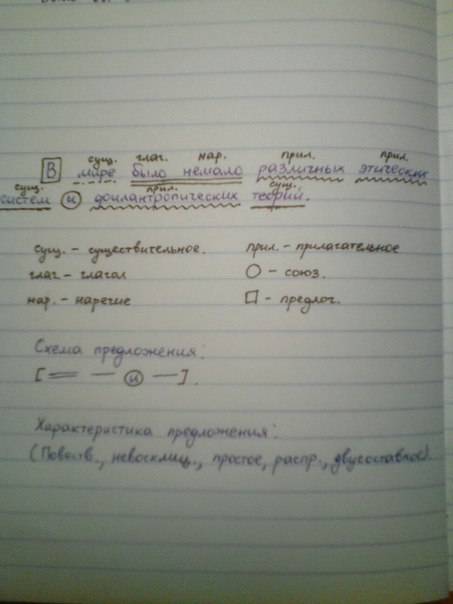 сущ. глаг. нар. прил. прил.
В мире было немало различных этических
сущ. прил. сущ.
систем и филантропических теорий.
сущ. - существительное. прил. - прилагательное
глаг - глагол ○ - союз.
нар. - наречие □ - предлог.
Схема предложения:
[═ — и —].
Характеристика предложения:
(Повеств., невосклиц., простое, распр., двусоставное).